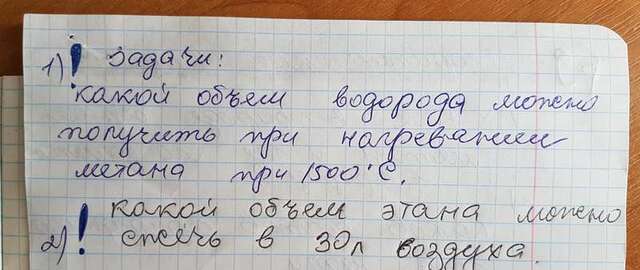 1) ! Задачи:
какой объем водорода можно
получить при нагревании
метана при 1500°С.
2) ! какой объем этана можно
сжечь в 30л воздуха.